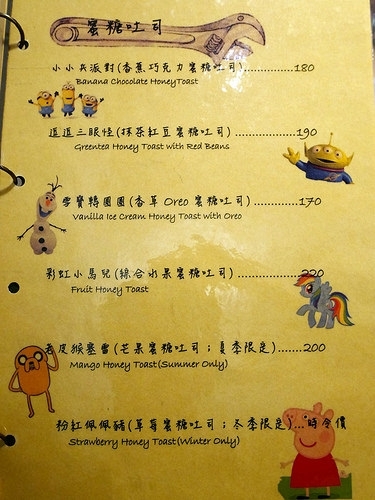 蜜糖吐司
小小兵派對(香蕉巧克力蜜糖吐司)...............180
Banana Chocolate HoneyToast
逗逗三眼怪(抹茶紅豆蜜糖吐司)..................190
Greentea Honey Toast with Red Beans
雪寶鴨圈圈(香草 Oreo 蜜糖吐司).............170
Vanilla Ice Cream Honey Toast with Oreo
彩虹小馬兒(綜合水果蜜糖吐司)....................220
Fruit Honey Toast
老皮猴塞雷(芒果蜜糖吐司；夏季限定).......200
Mango Honey Toast(Summer Only)
粉紅佩佩豬(草莓蜜糖吐司；冬季限定)...時令價
Strawberry Honey Toast(Winter Only)